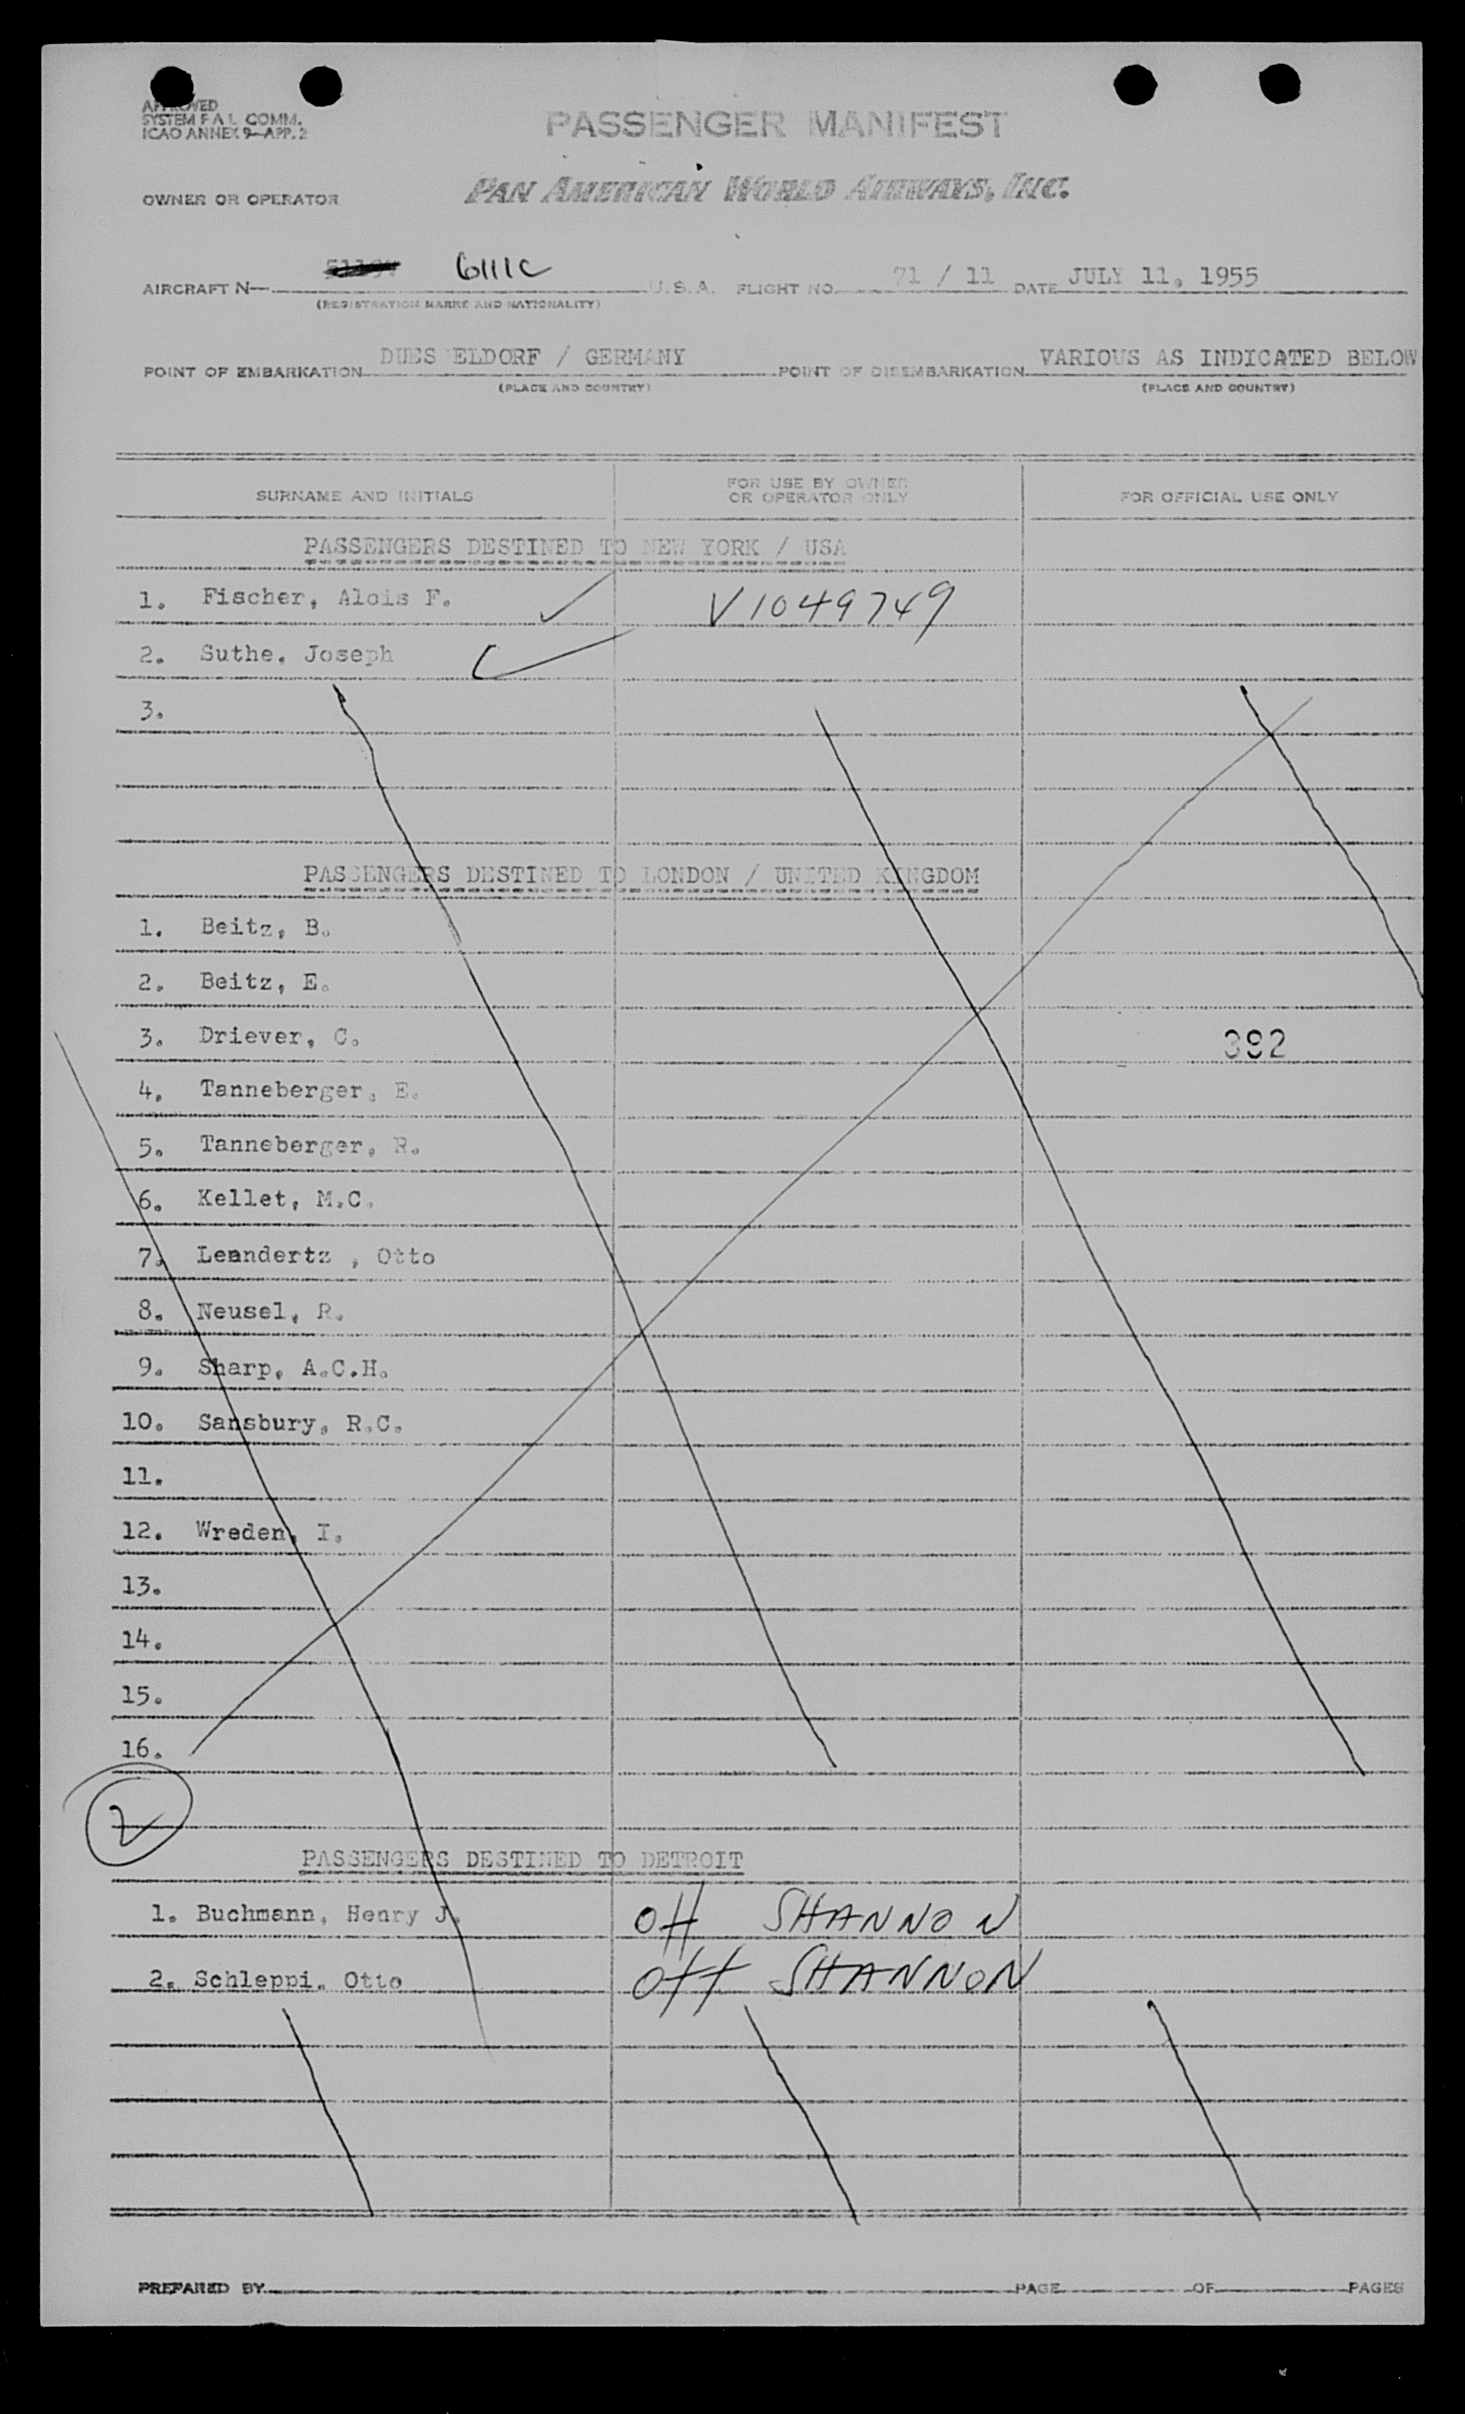 APPROVED
SYSTEM F A L COMM.
ICAO ANNEX 9-APP. 2
PASSENGER MANIFEST
OWNER OR OPERATOR PAN AMERICAN WORLD AIRWAYS, INC.
AIRCRAFT N— 6111C U. S. A. FLIGHT NO. 71 / 11 DATE JULY 11, 1955
(REGISTRATION MARKS AND NATIONALITY)
POINT OF EMBARKATION DUESSELDORF / GERMANY POINT OF DISEMBARKATION VARIOUS AS INDICATED BELOW
(PLACE AND COUNTRY) (PLACE AND COUNTRY)
SURNAME AND INITIALS FOR USE BY OWNER OR OPERATOR ONLY FOR OFFICIAL USE ONLY
PASSENGERS DESTINED TO NEW YORK / USA
1. Fischer, Alois F. V1049749
2. Suthe, Joseph
3.
PASSENGERS DESTINED TO LONDON / UNITED KINGDOM
1. Beitz, B.
2. Beitz, E.
3. Driever, C. 392
4. Tanneberger, E.
5. Tanneberger, R.
6. Kellet, M.C.
7. Leandertz , Otto
8. Neusel, R.
9. Sharp, A.C.H.
10. Sansbury, R.C.
11.
12. Wreden, I.
13.
14.
15.
16.
2
PASSENGERS DESTINED TO DETROIT
1. Buchmann, Henry J. Off SHANNON
2. Schleppi, Otto Off SHANNON
PREPARED BY PAGE OF PAGES